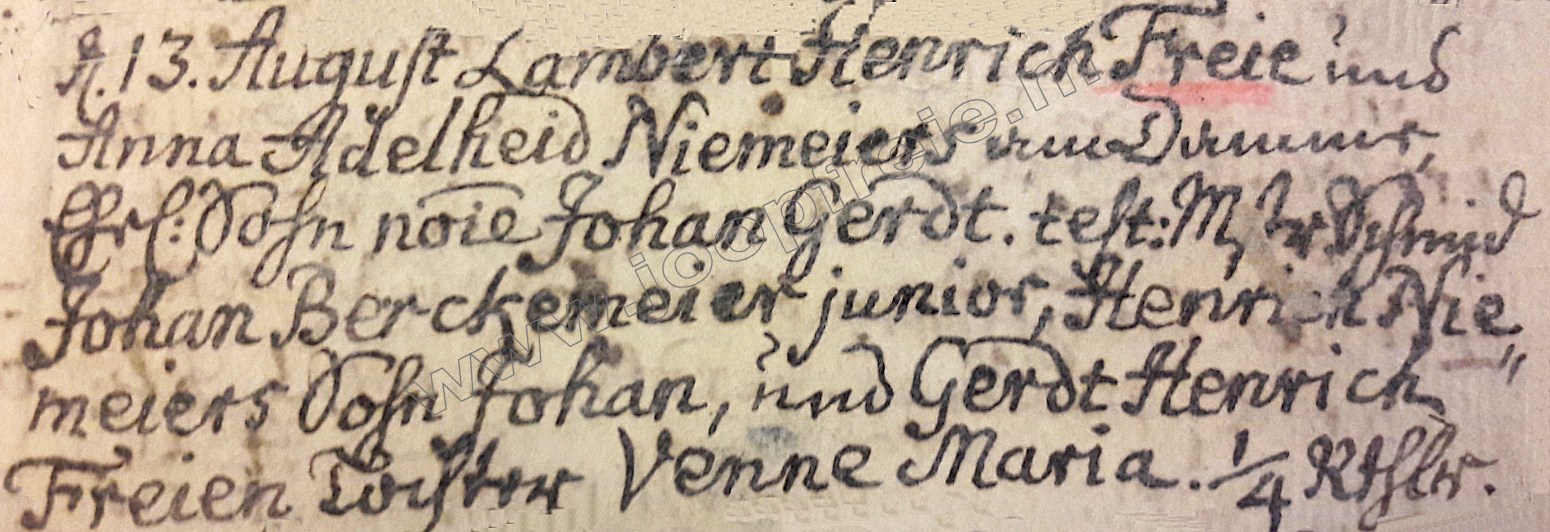 d. 13. August Lambert Henrich Freie und
Anna Adelheid Niemeiers am Damme,
Ehrl: Sohn noīe Johan Gerdt. test: Schmid
Johan Berckemeier junior, Henrich Nie„
meiers Sohn Johan, und Gerdt Henrich
Freien Tochter Venne Maria. 1/4 Rthlr.
www.joopfreie.nl